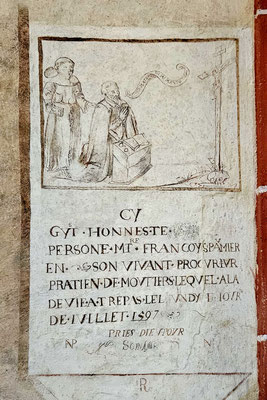 CY
GYT · HONNESTE ·
PERSONE · MTRE · FRANCOYS PAMIER
EN · SON VIVANT · PROCVREVR
PRATIEN · DE · MOVTIERS LEQVEL · ALA
DE VIE · A TREPAS · LE LVNDY I IOVR
DE · IVILLET · 1597
PRIES DIEV POVR
SON AME
R